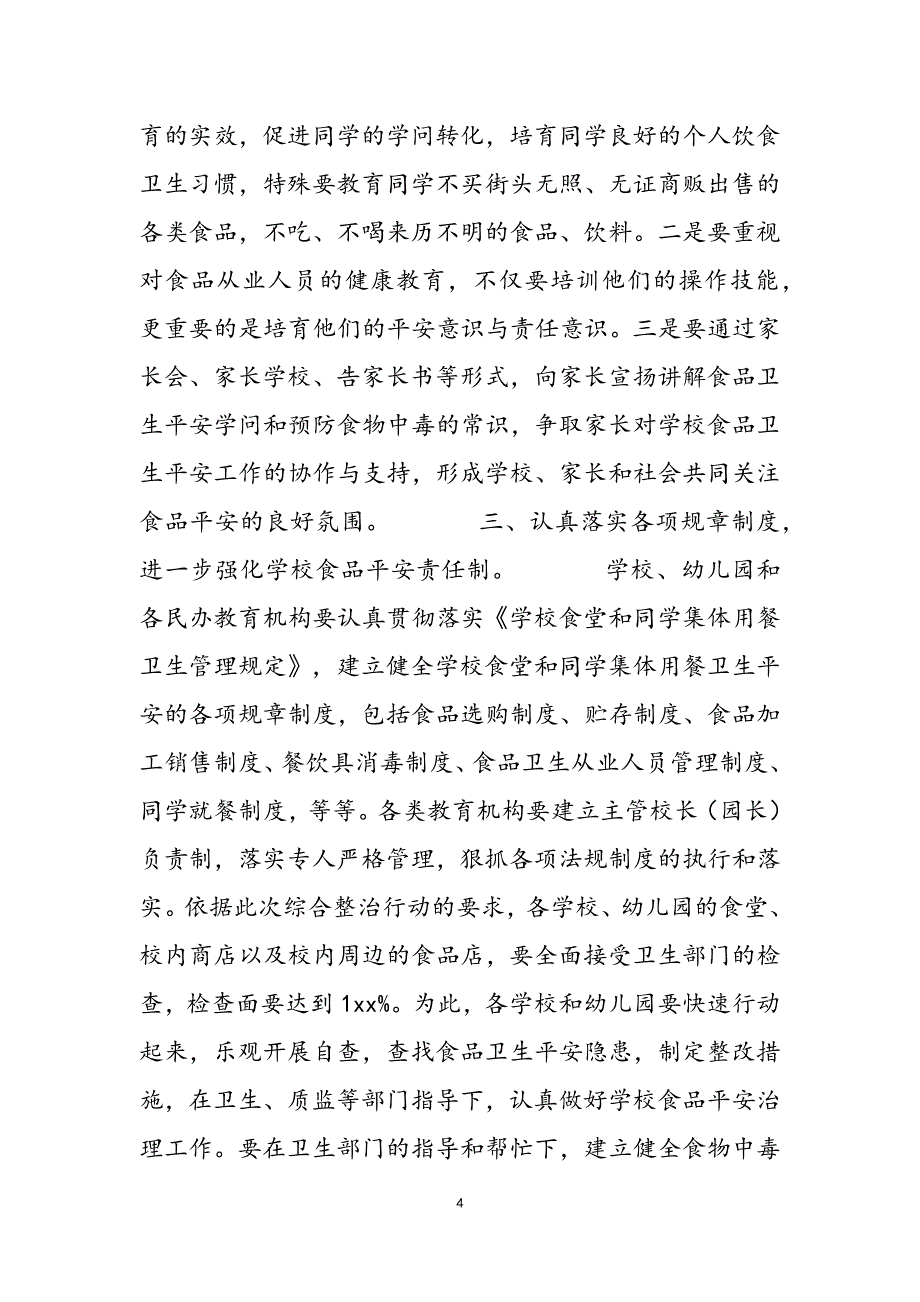 育的实效，促进同学的学问转化，培育同学良好的个人饮食
卫生习惯，特殊要教育同学不买街头无照、无证商贩出售的
各类食品，不吃、不喝来历不明的食品、饮料。二是要重视
对食品从业人员的健康教育，不仅要培训他们的操作技能，
更重要的是培育他们的平安意识与责任意识。三是要通过家
长会、家长学校、告家长书等形式，向家长宣扬讲解食品卫
生平安学问和预防食物中毒的常识，争取家长对学校食品卫
生平安工作的协作与支持，形成学校、家长和社会共同关注
食品平安的良好氛围。 三、认真落实各项规章制度，
进一步强化学校食品平安责任制。 学校、幼儿园和
各民办教育机构要认真贯彻落实《学校食堂和同学集体用餐
卫生管理规定》，建立健全学校食堂和同学集体用餐卫生平
安的各项规章制度，包括食品选购制度、贮存制度、食品加
工销售制度、餐饮具消毒制度、食品卫生从业人员管理制度、
同学就餐制度，等等。各类教育机构要建立主管校长（园长）
负责制，落实专人严格管理，狠抓各项法规制度的执行和落
实。依据此次综合整治行动的要求，各学校、幼儿园的食堂、
校内商店以及校内周边的食品店，要全面接受卫生部门的检
查，检查面要达到1xx%。为此，各学校和幼儿园要快速行动
起来，乐观开展自查，查找食品卫生平安隐患，制定整改措
施，在卫生、质监等部门指导下，认真做好学校食品平安治
理工作。要在卫生部门的指导和帮忙下，建立健全食物中毒
4